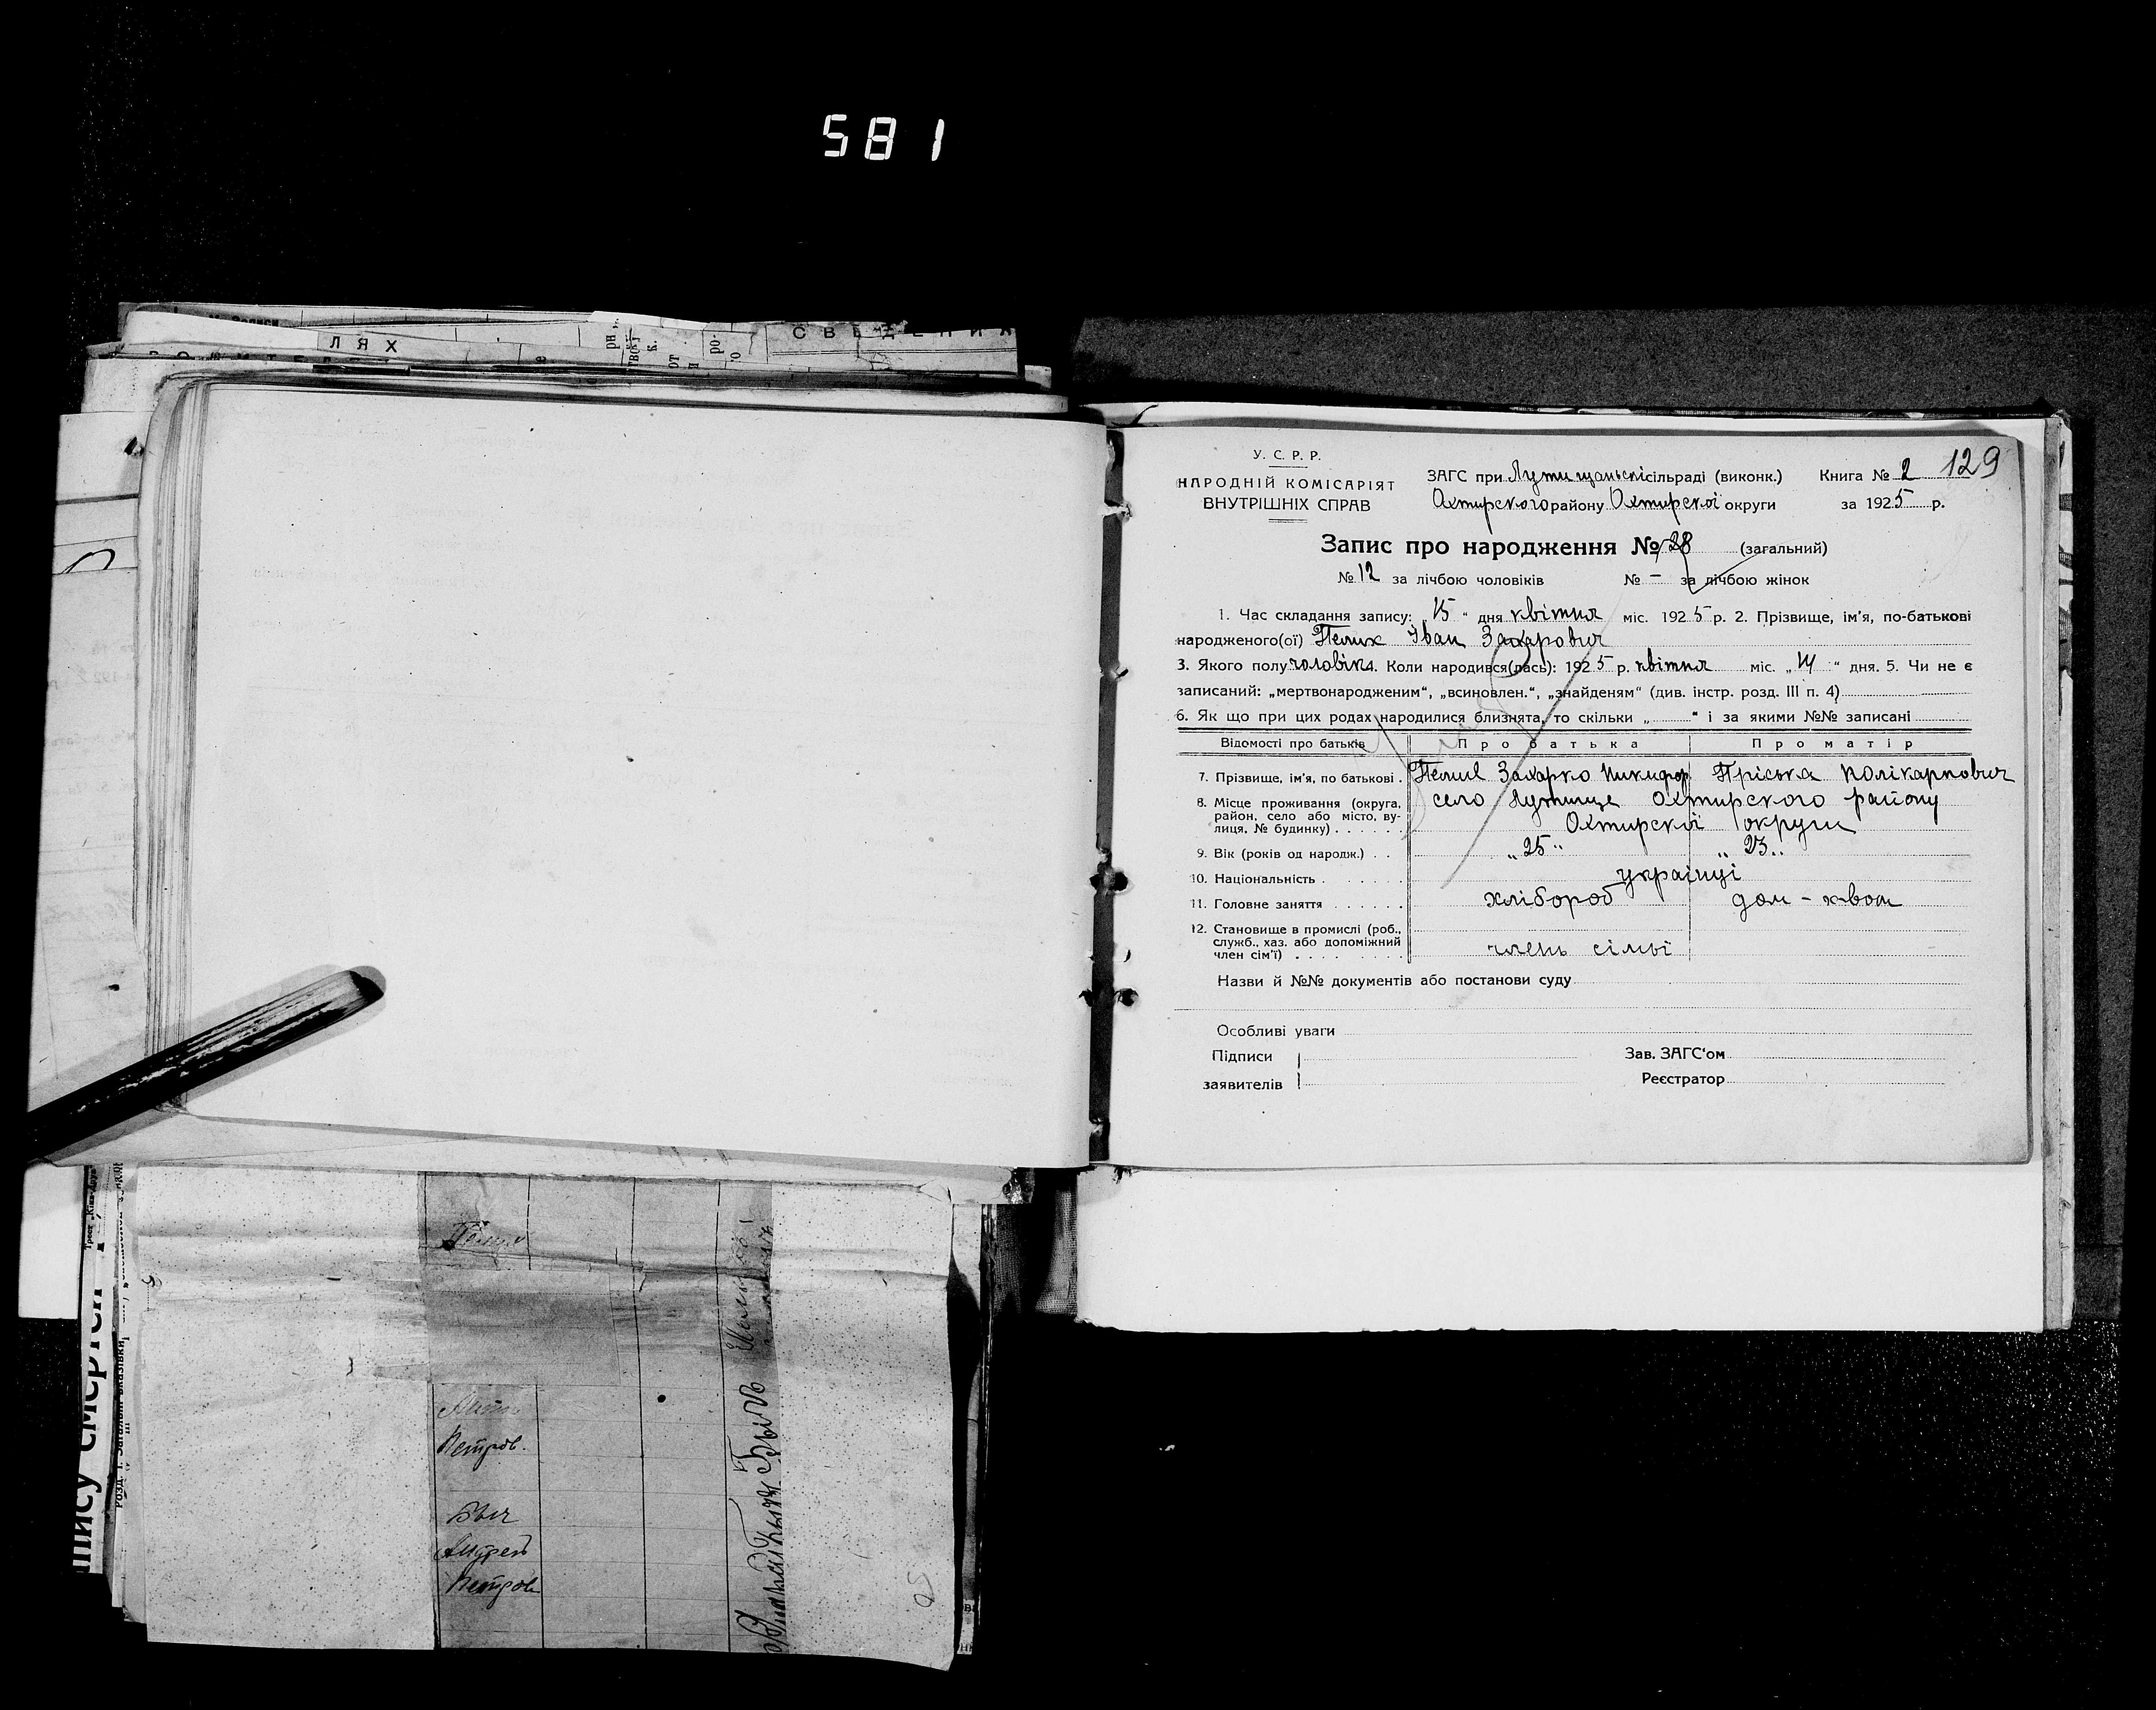 581
ЛЯХ
СВѢДЕНИЯ
У. С. Р. Р.
НАРОДНІЙ КОМІСАРІЯТ
ВНУТРІШНІХ СПРАВ
ЗАГС при Лутищанській сільраді (виконк.) Книга № 2 129
Охтирского району Охтирскої округи за 1925 р.
Запис про народження № 28 (загальний)
№ 12 за лічбою чоловіків № — за лічбою жінок
1. Час складання запису: „15“ дня квітня міс. 1925 р. 2. Прізвище, ім'я, по-батькові
народженого(ої) Пелих Іван Захарович
3. Якого полу чоловік 4. Коли народився(лась): 1925 р. квітня міс. „14“ дня. 5. Чи не є
записаний: „мертвонародженим“, „всиновлен.“, „знайденям“ (див. інстр. розд. III п. 4)
6. Як що при цих родах народилися близнята, то скільки „ “ і за якими №№ записані
Відомості про батьків Про батька Про матір
7. Прізвище, ім'я, по батькові Захарко Никифор Пріська Полікарпович
8. Місце проживання (округа, район, село або місто, вулиця, № будинку) село Лутище Охтирского району
Охтирскої округи
9. Вік (років од народж.) „25“ „23“
10. Національність українці
11. Головне заняття хлібороб дом-
12. Становище в промислі (роб., служб., хаз. або допоміжний член сім'ї) член сімьї
Назви й №№ документів або постанови суду
Особливі уваги
Підписи Зав. ЗАГС'ом
заявителів Реєстратор
Петров.
Быч
Андрей
Петров
пису смертей